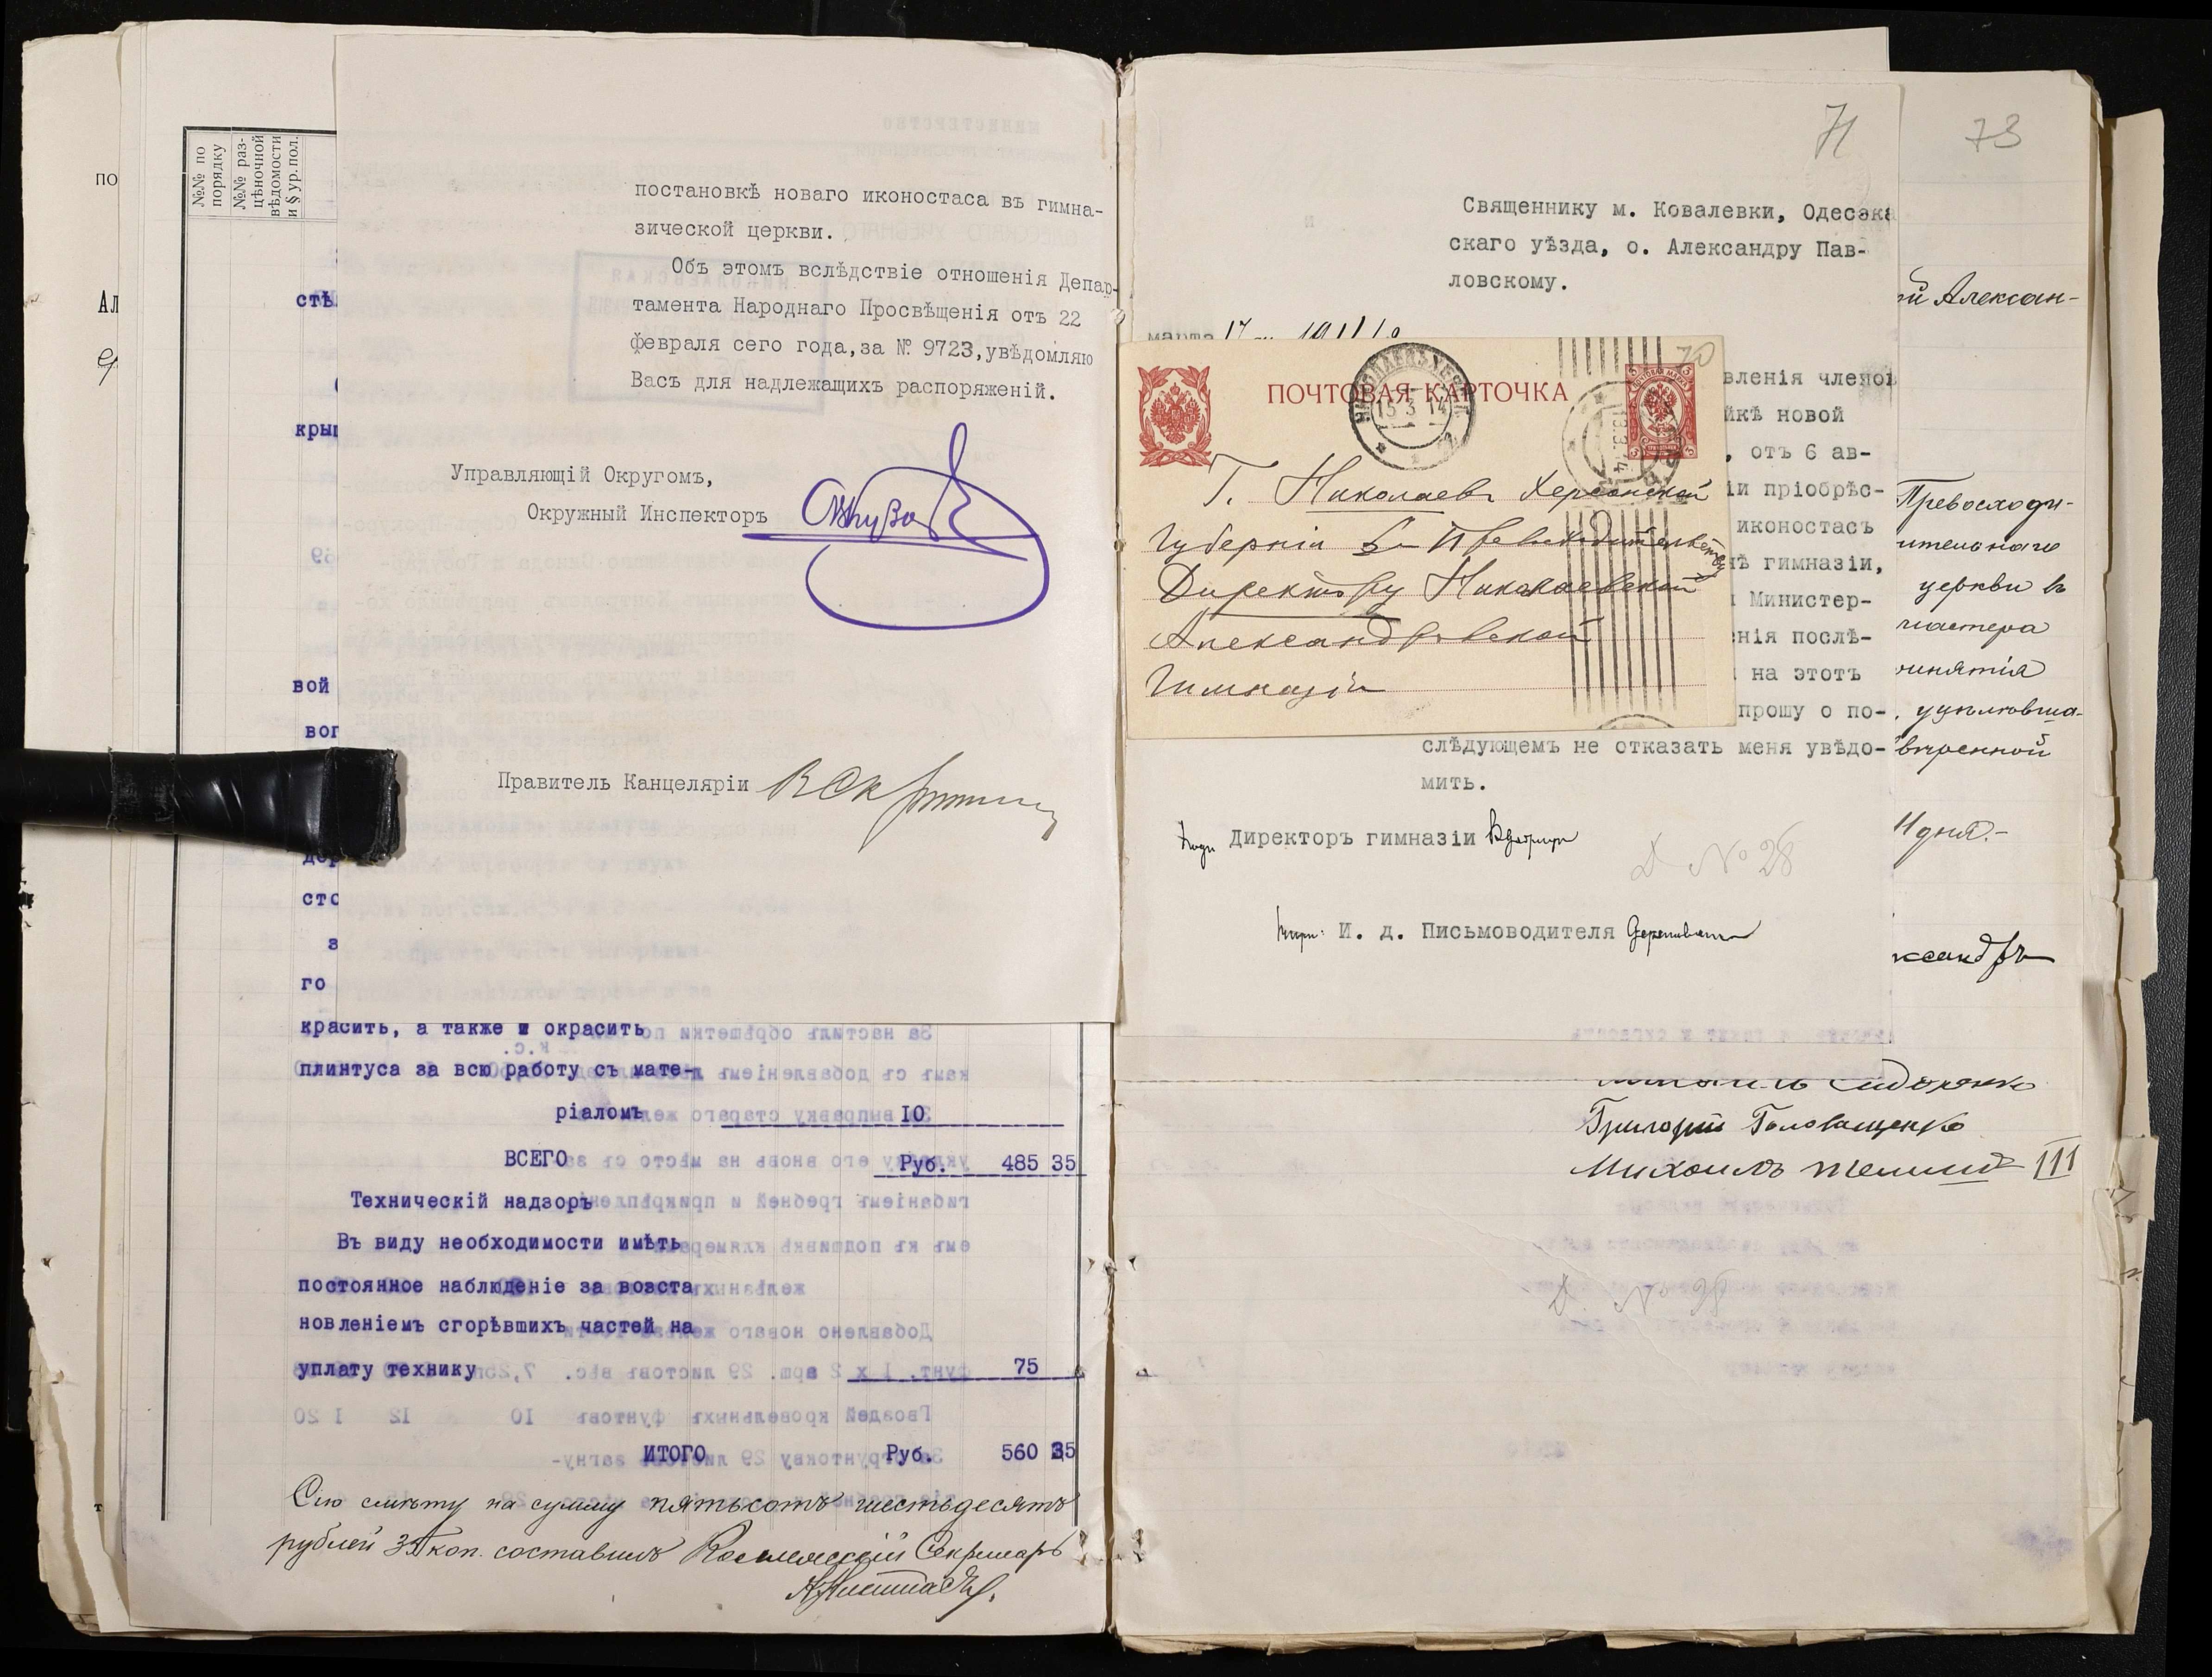 постановкѣ новаго иконостаса въ гимна-
зической церкви.
Объ этомъ вслѣдствіе отношенія Депар-
тамента Народнаго Просвѣщенія отъ 22
февраля сего года, за № 9723, увѣдомляю
Васъ для надлежащихъ распоряженій.
Управляющій Округомъ,
Окружный Инспекторъ
Правитель Канцеляріи
№№ по
порядку
№№ раз-
цѣночной
вѣдомости
и § ур. пол.
по
Ал
стѣ
кры
вой
вог
сто
з
го
красить, а также и окрасить
плинтуса за всю работу съ мате-
ріаломъ 10
ВСЕГО Руб. 485 35
Техническій надзоръ
Въ виду необходимости имѣть
постоянное наблюденіе за возста
новленіемъ сгорѣвшихъ частей на
уплату технику 75
ИТОГО Руб. 560 35
Сію смѣту на сумму пятьсотъ шестьдесятъ
рублей 35 коп. составилъ Коллежскій Секретарь
71
Священнику м. Ковалевки, Одесска
скаго уѣзда, о. Александру Пав-
ловскому.
марта 17
ПОЧТОВАЯ КАРТОЧКА
70
13 3 14
Г. Николаевъ Херсонской
Губерніи Его Превосходительству
Директору Николаевской
Александровской
Гимназіи
вленія членов
йкѣ новой
, отъ 6 ав-
іи пріобрѣс-
иконостасъ
нѣ гимназіи,
Министер-
нія послѣ-
на этотъ
прошу о по-
слѣдующемъ не отказать меня увѣдо-
мить.
Директоръ гимназіи
Д № 28
И. д. Письмоводителя
73
й Алексан-
Превосходи-
ительнаго
церкви въ
мастера
инятія
ввѣренной
11 дня.-
ксандръ
Григорій Головащенко
Михаилъ
III